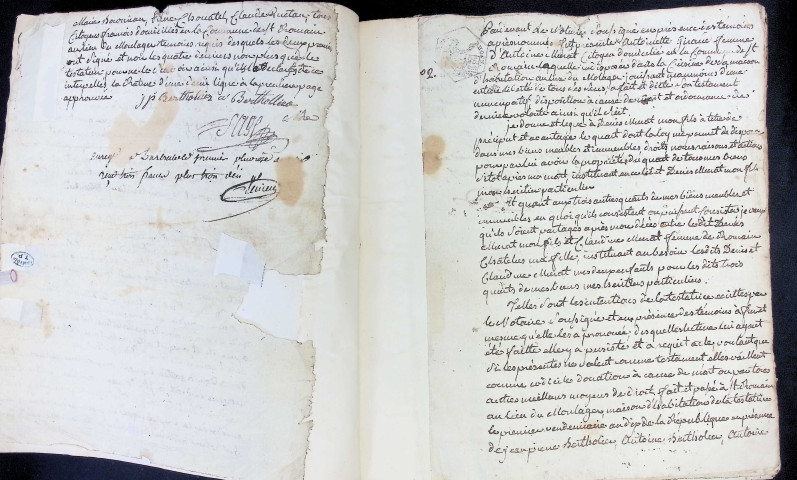 citoyens francois domiciliés en la Commune de St Romain
au lieu du Moulage, temoins, après desquels les deux premiers
ont signé et non les quatre derniers non plus que la
testatrice pour ne le savoir ainsi qu'ils l'ont declaré de ce
interpellés, la rature d'une demi ligne à la première page
approuvée
J P Bertholier A Bertholier
reçu trois francs plus trois déci
Pardevant le Notaire soussigné en presence des temoins
après nommés, fut presente Antoinette Giraud femme
d'Antoine Mevat Citoyen domicilié en la Commune de St
Romain laquelle
habitation au lieu du Molage, jouissant neanmoins d'une
entière liberté de tous ses sens, a fait et dicté son testament
nuncupatif disposition à cause de mort et ordonnance de
dernière volonté ainsi qu'il s'ensuit.
je donne et legue à Denis Mevat mon fils à titre de
preciput et avantage le quart dont la loy me permet de disposer
dans mes biens meubles et immeubles droits noms raisons et actions
pour par lui avoir la propriété du quart de tous mes biens
d'icel après ma mort, instituant en icelui et Denis Mevat mon fils
mon heritier particulier
Et quant aux trois autres quarts de mes biens meubles et
immeubles en quoi qu'ils consistent ou puissent consister je veux
qu'ils soient partagés après mon décès entre ledit Denis
Mevat mon fils et Claudine Mevat femme de Romain
Chatelus ma fille, instituant au besoin lesdits Denis et
Claudine Mevat mes deux enfants pour lesdits trois
quarts de mes biens mes heritiers particuliers.
Telles sont les intentions de la testatrice écrites par
le Notaire soussigné et en presence des temoins à fur et
mesure qu'elle les a prononcé desquelles lecture lui ayant
été faitte elle y a persisté et a requis acte voulant que
si les présentes ne valent comme testament elles vaillent
comme codicile donation à cause de mort ou par tous
autres meilleurs moyens de droit, fait et passé à St Romain
au lieu du Moulage, maison d'habitation de la testatrice
le premier vendemiaire an dix de la République en présence
de jean pierre Bertholier, Antoine Bertholier, Antoine